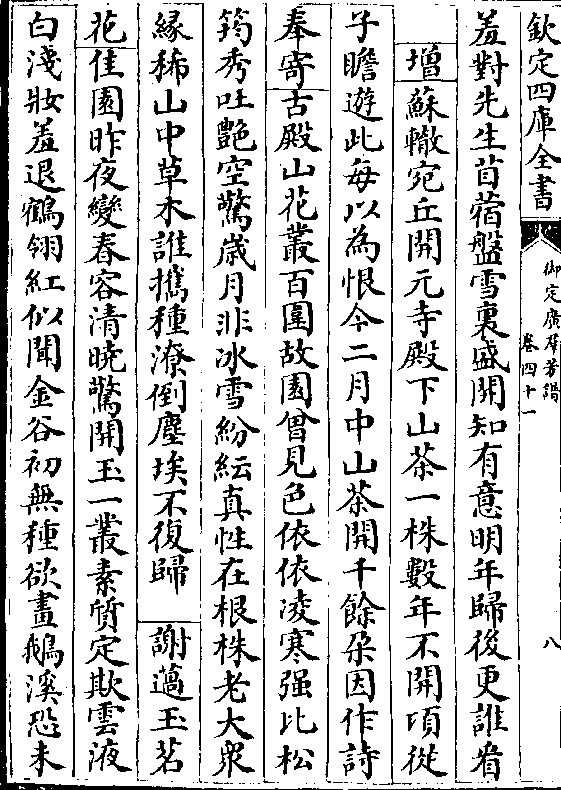 欽定四庫全書
御定廣羣芳譜
卷四十一
八
羞對先生苜蓿盤雪裏盛開知有意明年歸後更誰看
增蘇轍宛丘開元寺殿下山茶一株數年不開頃從
子瞻遊此每以為恨今二月中山茶開千餘朶因作詩
奉寄古殿山花叢百圍故園曾見色依依凌寒强比松
筠秀吐艷空驚歲月非冰雪紛紜真性在根株老大衆
緣稀山中草木誰攜種潦倒塵埃不復歸 謝薖玉茗
花佳園昨夜變春容清曉驚開玉一叢素質定欺雲液
白淺妝羞退鶴翎紅似聞金谷初無種欲畫鵝溪恐未